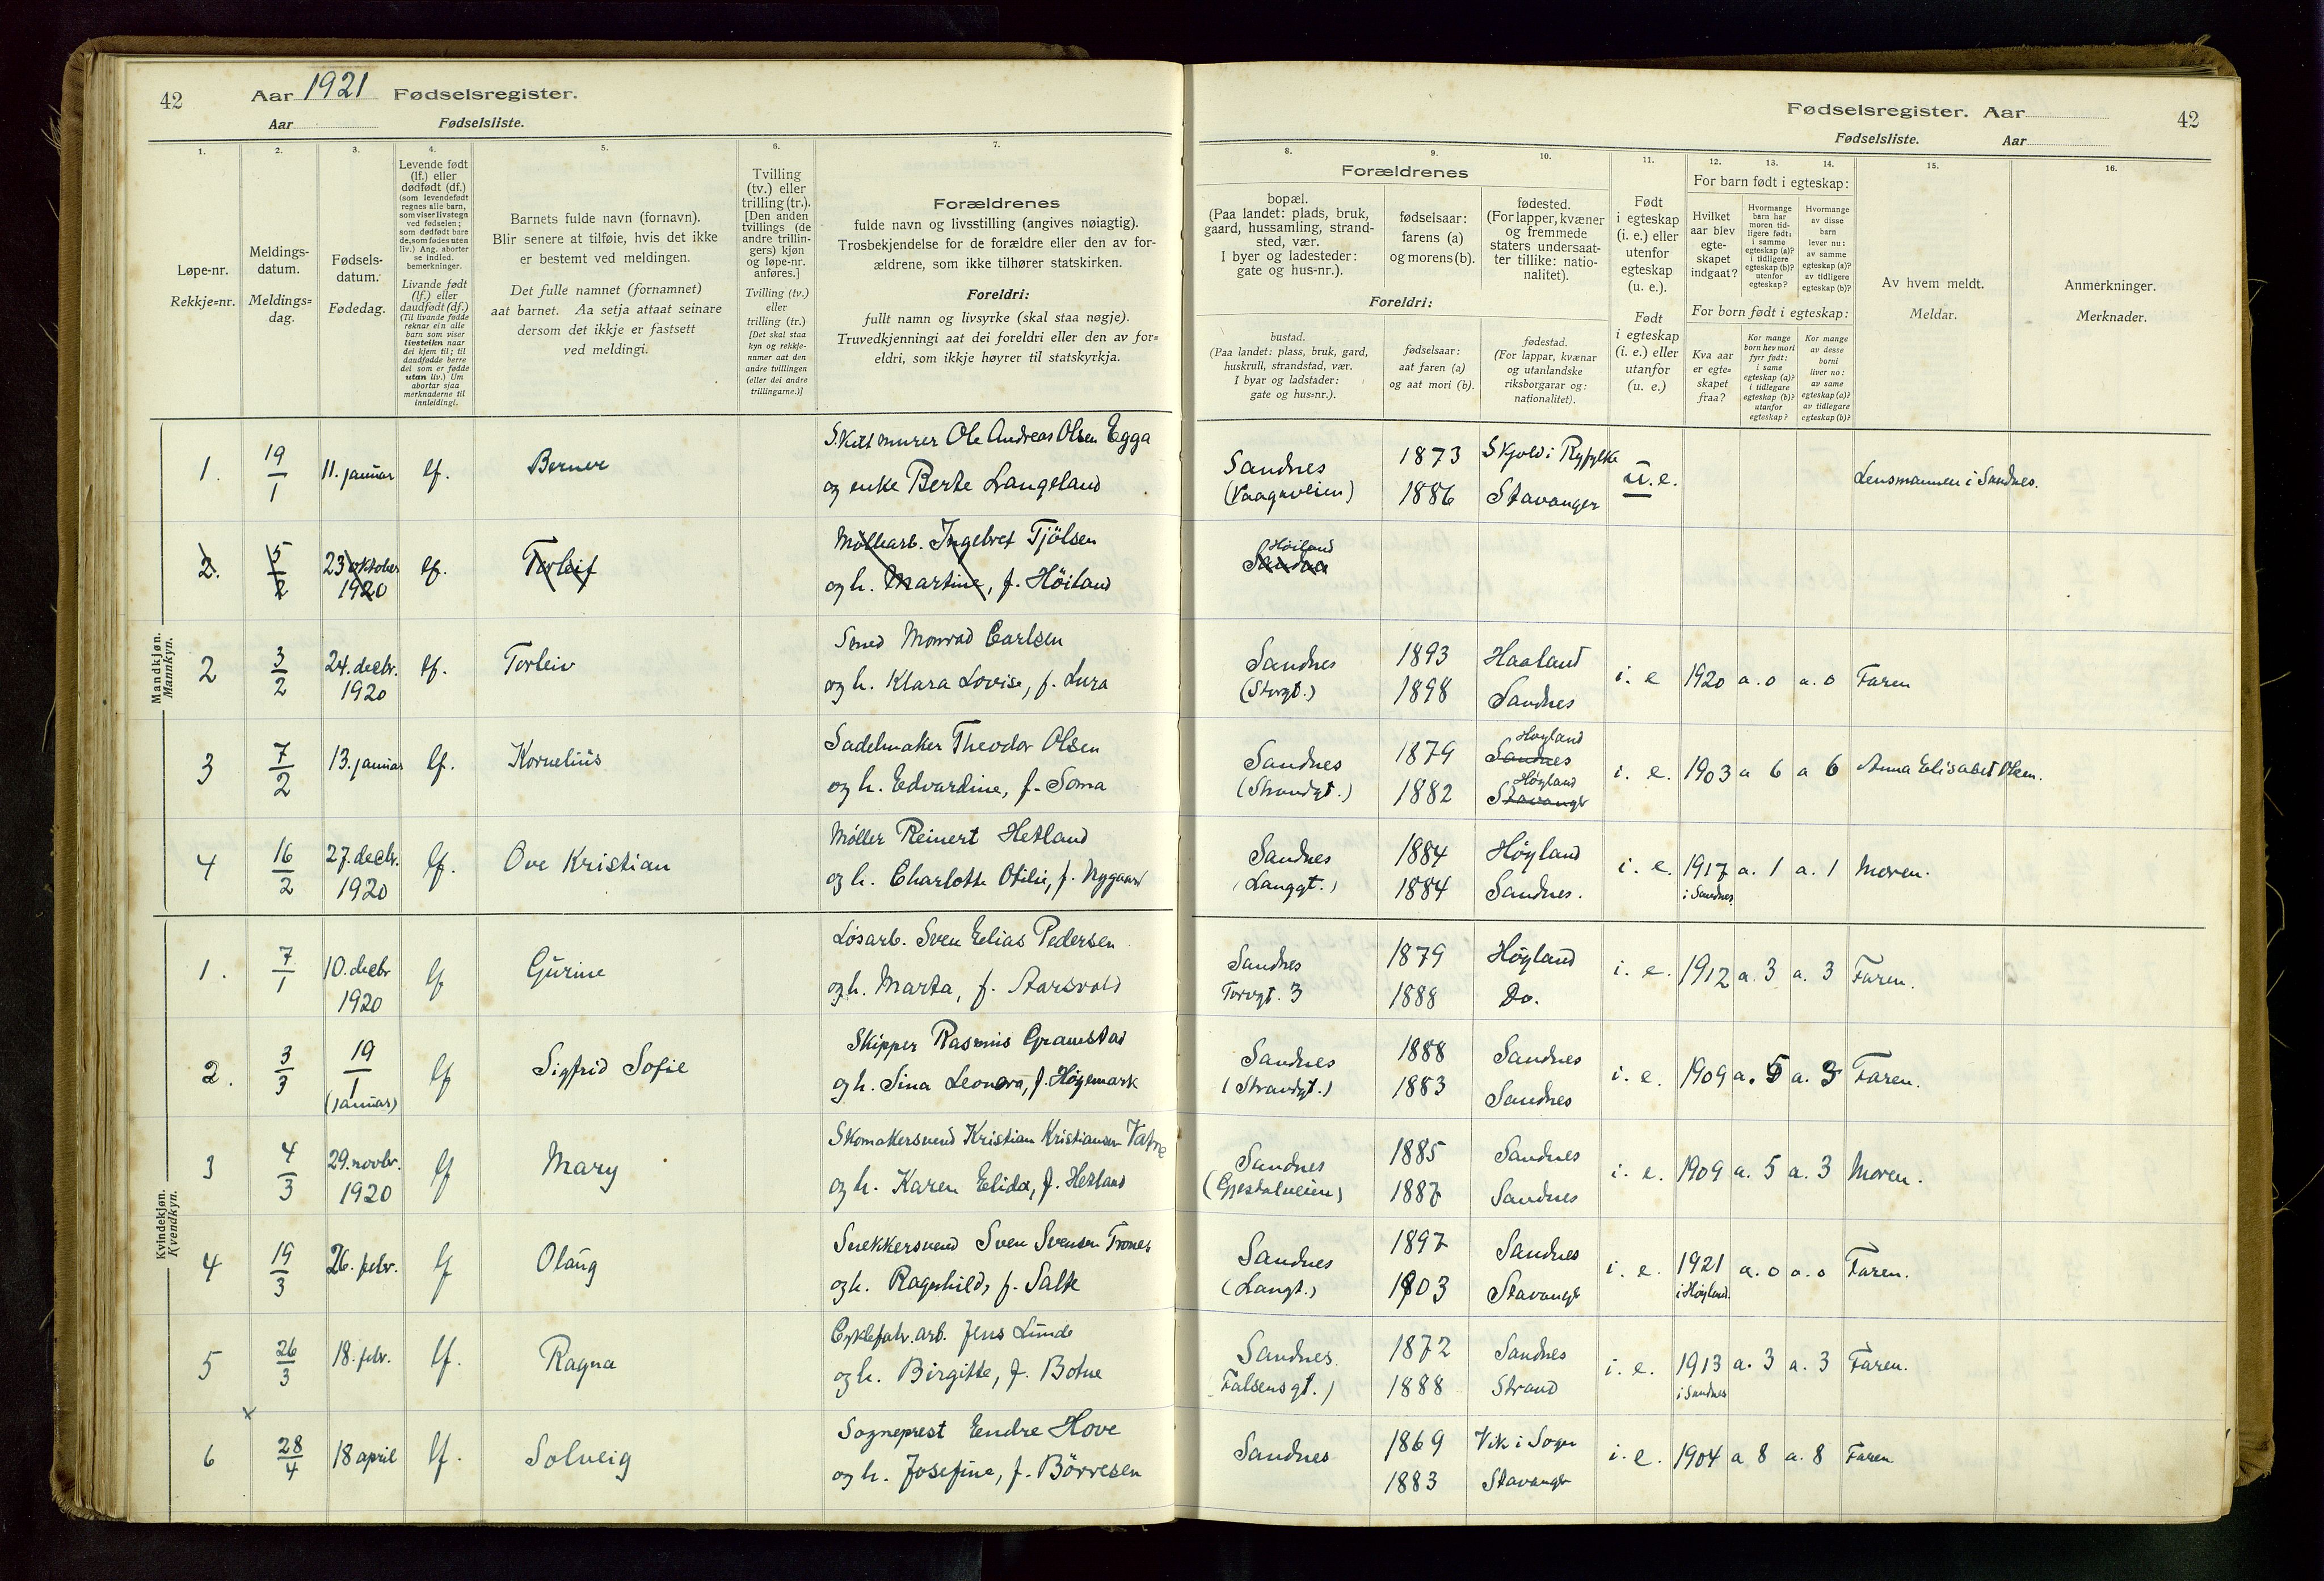 42
Aar 1921 Fødselsregister.
Aar Fødselsliste.
1.
Løpe-nr.
Rekkje=nr.
2.
Meldings-
datum.
Meldings=
dag.
3.
Fødsels-
datum.
Fødedag.
4.
Levende født
(lf.) eller
dødfødt (df.)
(som levendefødt
regnes alle barn,
som viser livstegn
ved fødselen;
som dødfødt bare
de, som fødes uten
liv.) Ang. aborter
se indled.
bemerkninger.
Livande født
(lf.) eller
daudfødt (df.)
(Til livande fødde
reknar ein alle
barn som viser
livsteikn naar
dei kjem til; til
daudfødde berre
dei som er fødde
utan liv.) Um
abortar sjaa
merknaderne til
innleidingi.
5.
Barnets fulde navn (fornavn).
Blir senere at tilføie, hvis det ikke
er bestemt ved meldingen.
Det fulle namnet (fornamnet)
aat barnet. Aa setja attaat seinare
dersom det ikkje er fastsett
ved meldingi.
6.
Tvilling
(tv.) eller
trilling (tr.).
[Den anden
tvillings (de
andre trillin-
gers) kjøn
og løpe-nr.
anføres.]
Tvilling (tv.)
eller
trilling (tr.)
[Det skal staa
kyn og rekkje-
numer aat den
andre tvillingen
(eller dei andre
trillingarne.)]
7.
Forældrenes
fulde navn og livsstilling (angives nøiagtig).
Trosbekjendelse for de forældre eller den av for-
ældrene, som ikke tilhører statskirken.
Foreldri:
fullt namn og livsyrke (skal staa nøgje).
Truvedkjenningi aat dei foreldri eller den av for=
eldri, som ikkje høyrer til statskyrkja.
Fødselsregister. Aar
42
Fødselsliste. Aar
8.
9.
10.
Forældrenes
bopæl.
(Paa landet: plads, bruk,
gaard, hussamling, strand-
sted, vær.
I byer og ladesteder:
gate og hus-nr.).
fødselsaar:
farens (a)
og morens (b).
fødested.
(For lapper, kvæner
og fremmede
staters undersaat-
ter tillike: natio-
nalitet).
Foreldri:
bustad.
(Paa landet: plass, bruk, gard,
huskrull, strandstad, vær.
I byar og ladstader:
gate og hus=nr.).
fødselsaar:
aat faren (a)
og aat mori (b).
fødestad.
(For lappar, kvænar
og utanlandske
riksborgarar og:
nationalitet).
11.
Født
i egteskap
(i. e.) eller
utenfor
egteskap
(u. e.).
Født
i egteskap
(i. e.) eller
utanfor
(u. e.)
12.
13.
14.
For barn født i egteskap:
Hvilket
aar blev
egte-
skapet
indgaat?
Hvormange
barn har
moren tid-
ligere født:
i samme
egteskap (a)?
i tidligere
egteskap (b)?
utenfor
egteskap?
Hvormange
av disse
barn
lever nu:
av samme
egteskap (a)?
av tidligere
egteskap (b)?
For born født i egteskap:
Kva aar
er egte=
skapet
fraa?
Kor mange
born hev mori
fyrr født:
i same
egteskap (a)?
i tidlegare
egteskap (b)?
utanfor
egteskap?
Kor mange
av desse
borni
liver no:
av same
egteskap (a)?
av tidlegare
egteskap (b)?
15.
Av hvem meldt.
Meldar.
16.
Anmerkninger.
Merknader.
Mandkjøn.
Mannkyn.
1. 19/1 11. januar lf. Berner
murer Ole Andreas Olsen Egga
og enke Berte Langeland
Sandnes 1873 Skjold i Ryfylke
(Vaagaveien) 1886 Stavanger
u. e. Lensmannen i Sandnes.
2. 5/2 23 oktober 1920 lf. Torleif
Møllearb. Ingebret Tjölsen
og h. Martine, f. Höiland
Höiland
Sandnes
2 3/2 24. decbr. 1920 lf. Torleiv
Smed Monrad Carlsen
og h. Klara Lovise, f. Lura
Sandnes 1893 Haaland
(Storgt.) 1898 Sandnes
i. e 1920 a. 0 a. 0 Faren
3 7/2 13. januar lf. Kornelius
Sadelmaker Theodor Olsen
og h. Edvardine, f. Soma
Høyland
Sandnes 1879 Sandnes
Høyland
(Strandgt.) 1882 Stavanger
i. e. 1903 a 6 a 6 Anna Elisabet Olsen.
4 16/2 27. decbr. 1920 lf. Ove Kristian
Møller Reinert Hetland
og h. Charlotte Otilie, f. Nygaard
Sandnes 1884 Høyland
(Langgt.) 1884 Sandnes.
i. e. 1917 i Sandnes a. 1 a. 1 Moren.
Kvindekjøn.
Kvendkyn.
1. 7/1 10. decbr 1920 lf Gurine
Løsarb. Sven Elias Pedersen
og h. Marta, f. Aarsvold
Sandnes 1879 Høyland
Torvgt. 3 1888 Do.
i. e. 1912 a. 3 a. 3 Faren.
2. 3/3 19/1 (januar) lf Sigfrid Sofie
Skipper Rasmus Gramstad
og h. Sina Leonora, f. Høgemark
Sandnes 1888 Sandnes
(Strandgt.) 1883 Sandnes
i. e. 1909 a. 5 a. 3 Faren.
3 4/3 29. novbr. 1920 lf Mary
Skomakersvend Kristian Kristiansen Vatne
og h. Karen Elida, f. Hetland
Sandnes 1885 Sandnes
(Gjesdalveien) 1887 Sandnes
i. e. 1909 a. 5 a. 3 Moren.
4 19/3 26. febr. lf Olaug
Snekkersvend Sven Svensen Trones
og h. Ragnhild, f. Salte
Sandnes 1897 Sandnes
(Langt.) 1903 Stavanger
i. e. 1921 i Høyland. a. 0 a. 0 Faren.
5 26/3 18. febr. lf. Ragna
Cyklefabr. arb. Jens Lunde
og h. Birgitte, f. Botne
Sandnes 1872 Sandnes
Falsensgt.) 1888 Strand
i. e. 1913 i Sandnes a. 3 a. 3 Faren.
x
6 28/4 18 april lf. Solveig
Sogneprest Endre Hove
og h. Josefine, f. Börresen
Sandnes 1869 Vik i Sogn
1883 Stavanger
i. e. 1904 a 8 a. 8 Faren